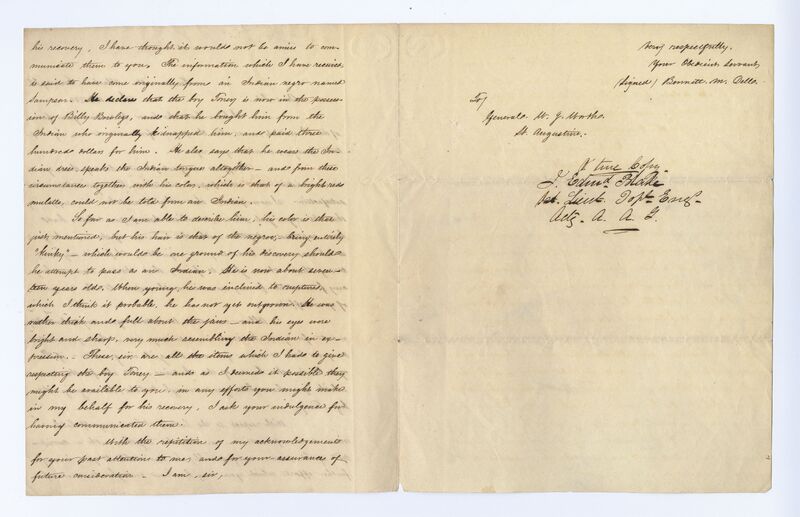 his recovery, I have thought it would not be amiss to com-
municate them to you. The information which I have received
is said to have come originally from an Indian negro named
Sampson. He declares that the boy Toney is now in the posses-
sion of Billy Bowlegs, and that he bought him from the
Indian who originally kidnapped him, and paid three
hundred dollars for him. He also says that he wears the In-
dian dress, speaks the Indian tongue altogether — and from these
circumstances together with his color, which is that of a bright red
mulatto, could not be told from an Indian.
So far as I am able to describe him, his color is that
just mentioned, but his hair is that of the negro, — being entirely
"kinky" — which would be one ground of his discovery should
he attempt to pass as an Indian. He is now about seven-
teen years old. When young, he was inclined to rupture,
which I think it probable, he has not yet outgrown. He was
rather thick and full about the jaws — and his eyes were
bright and sharp, very much resembling the Indian in ex-
pression. — These, sir, are all the items which I had to give
respecting the boy Toney — and as I deemed it possible they
might be available to you, in any efforts you might make
in my behalf for his recovery, I ask your indulgence for
having communicated them.
With the repetition of my acknowledgements
for your past attention to me, and for your assurances of
future consideration — I am, sir,
Very respectfully,
Your Obedient Servant,
(Signed) Bennett M. Dell.
To/
General W. J. Worth.
St. Augustine.
A true Copy
J. Edmd Blake
Lieut. Topl. Engs.
Actg. A. A. G.